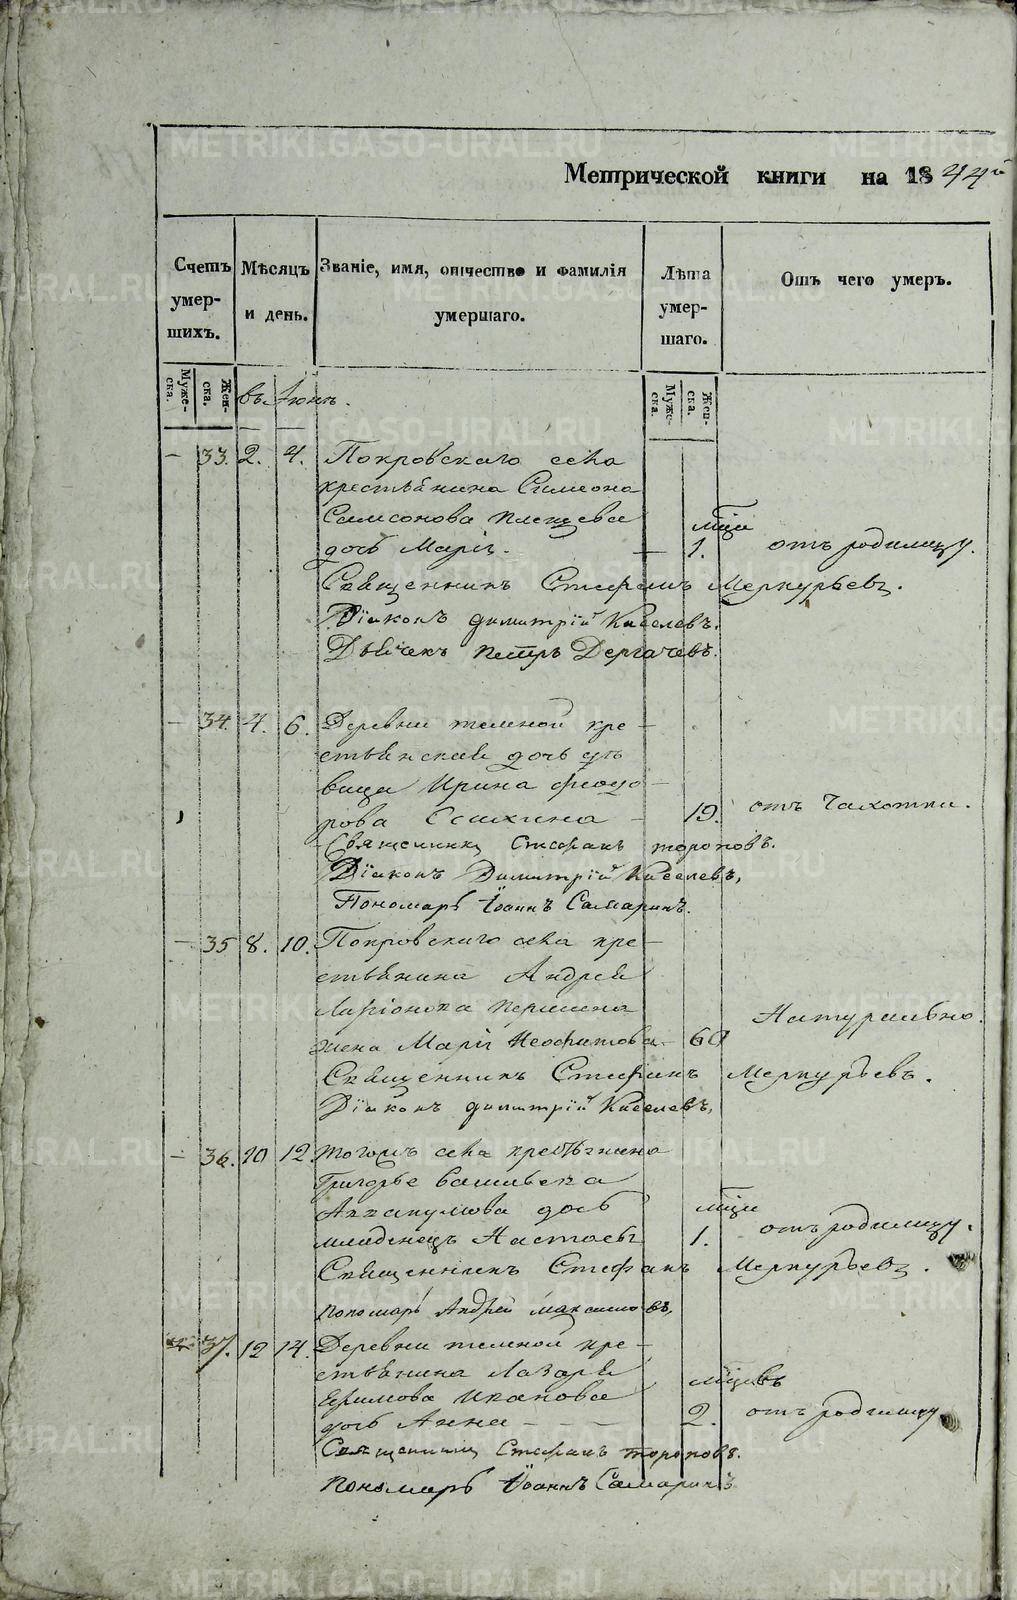 Метрической книги на 1844й
Счетъ умер-шихъ.
Мѣсяцъ и день.
Званіе, имя, отчество и фамилія умершаго.
Лѣта умер-шаго.
Отъ чего умеръ.
Муже-ска.
Жен-ска.
Муже-ска.
Жен-ска.
въ Іюнѣ.
— 33. 2. 4. Покровскаго села
крестьянина Симеона
Самсонова Плещева мцъ
дочь Марія. — 1. отъ родимцу.
Священникъ Стефанъ Меркурьевъ.
Діаконъ Димитрій Киселевъ.
Дьячекъ Петръ Дергачевъ.
— 34. 4. 6. Деревни темной кре-
стьянская дочь дѣ
вица Ирина Феодо-
рова 19. отъ Чахотки.
Священникъ Стефанъ Тороповъ.
Діаконъ Димитрій Киселевъ,
Пономарь Іоаннъ Самаринъ.
— 35 8. 10. Покровскаго села кре-
стьянина Андрея
Ларіонова
жена Марія Неофитова — 60 Натурально.
Священникъ Стефанъ Меркурьевъ.
Діаконъ Димитрій Киселевъ,
— 36. 10 12. Тогожъ села крестьянина
Григорье Васильева
Аввакумова дочь
младенецъ Настасья 1. отъ родимцу.
Священникъ Стефанъ Меркурьевъ.
Пономарь Андрей Максимовъ,
37. 12 14. Деревни темной кре-
стьянина Лазаря
Ефимова Иванова
дочь Анна 2. отъ родимцу
Священникъ Стефанъ Тороповъ.
Пономарь Іоаннъ Самаринъ
METRIKI.GASO-URAL.RU